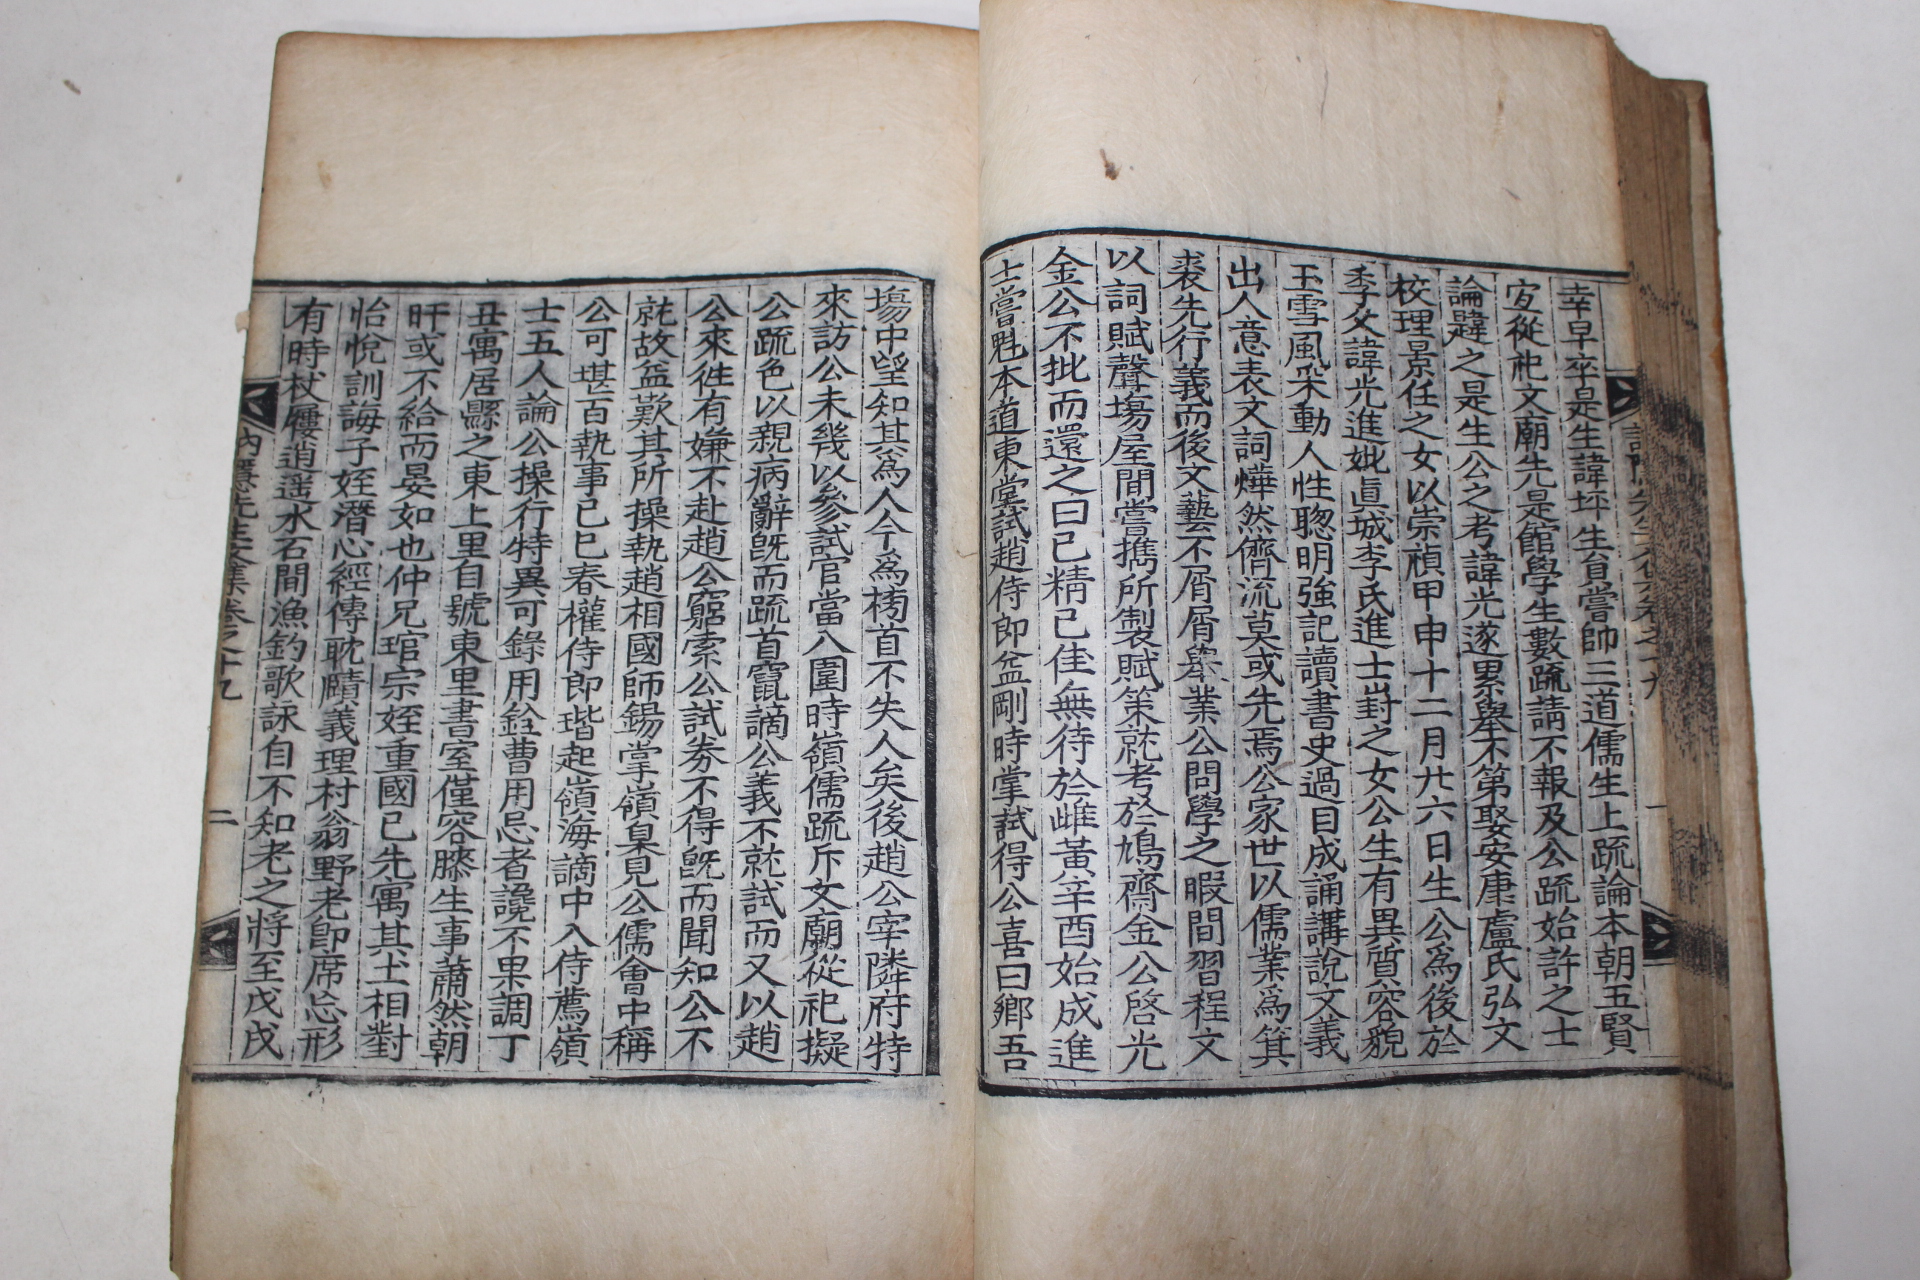 幸早卒是生諱坪生員嘗師三道儒生上疏論本朝五賢
宜從祀文廟先是館學生數疏請不報及公疏始許之士
論韙之是生公之考諱光遂累舉不第娶安康盧氏弘文
校理景任之女以崇禎甲申十二月廿六日生公爲後於
季父諱光進妣眞城李氏進士崶之女公生有異質容貌
玉雪風采動人性聰明強記讀書史過目成誦講說文義
出人意表文詞燁然儕流莫或先焉公家世以儒業爲箕
裘先行義而後文藝不屑屑舉業公問學之暇間習程文
以詞賦聲塲屋間嘗携所製賦策就考於鳩齋金公啓光
金公不批而還之曰已精已佳無待於雌黃辛酉始成進
士嘗魁本道東堂試趙侍郞益剛時掌試得公喜曰鄕吾
塲中望知其爲人今爲榜首不失人矣後趙公宰隣府特
來訪公未幾以參試官當入圍時嶺儒疏斥文廟從祀擬
公疏色以親病辭旣而疏首竄謫公義不就試而又以趙
公來徃有嫌不赴趙公窮索公試券不得旣而聞知公不
就故益歎其所操執趙相國師錫掌嶺臬見公儒會中稱
公可堪百執事己巳春權侍郞瑎起嶺海謫中入侍薦嶺
士五人論公操行特異可錄用銓曹用忌者讒不果調丁
丑寓居縣之東上里自號東里書室僅容膝生事蕭然朝
旰或不給而晏如也仲兄琯宗姪重國已先寓其土相對
怡悅訓誨子姪潛心經傳耽賾義理村翁野老卽席忘形
有時杖屨逍遥水石間漁釣歌詠自不知老之將至戊戌
先生文集卷之十九
二